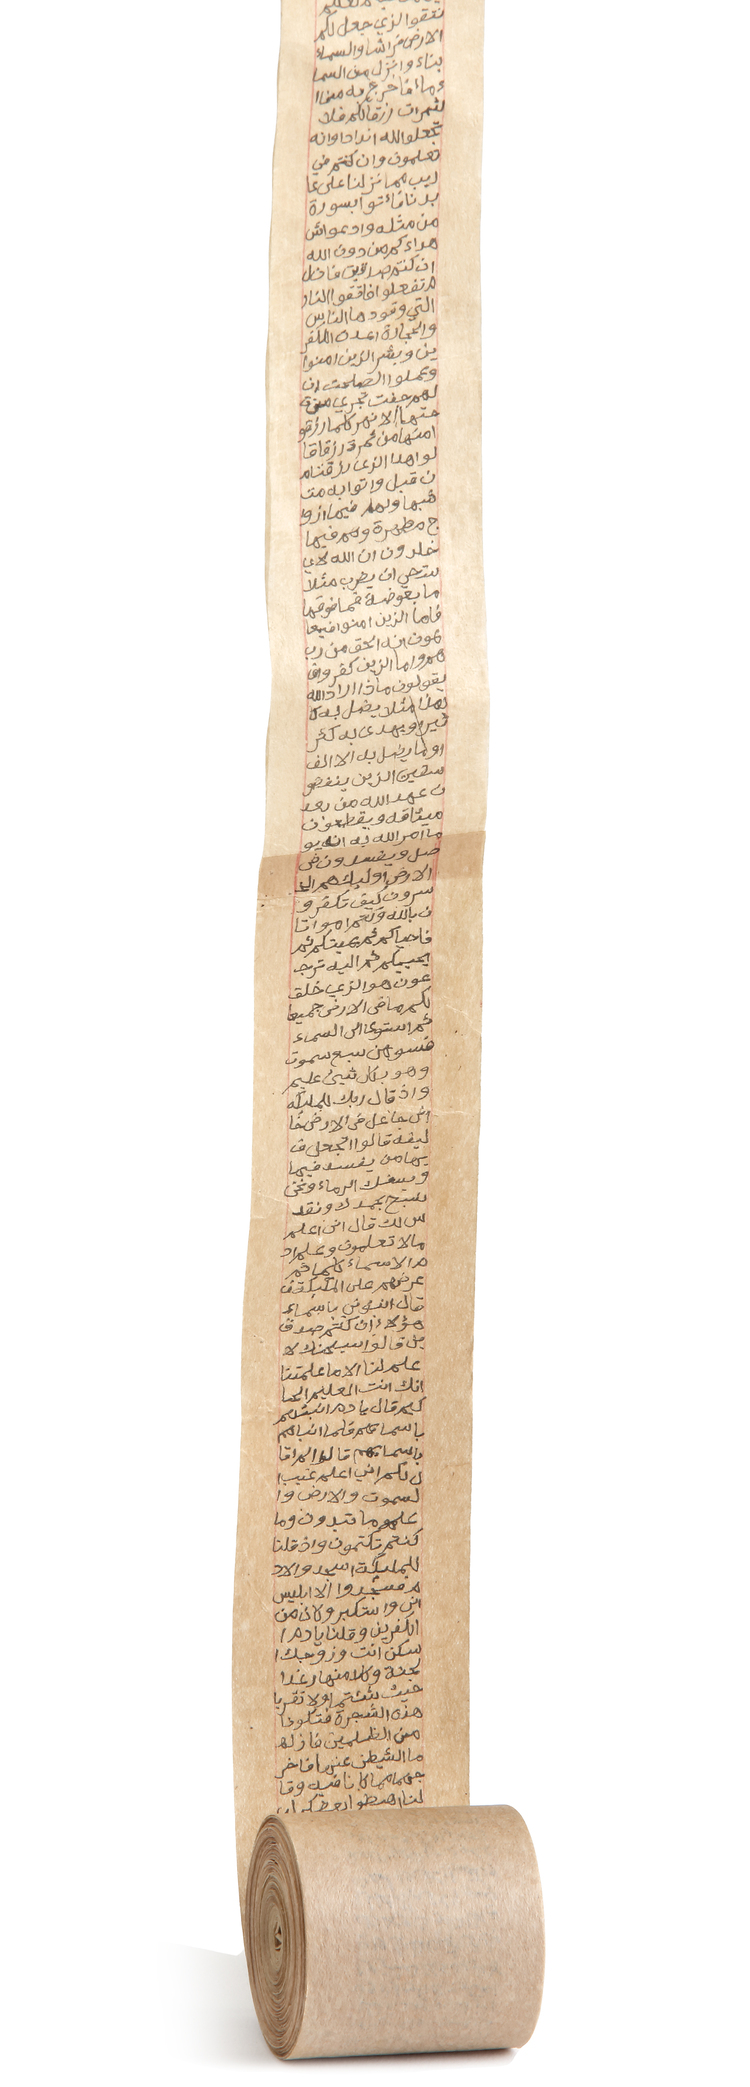 تتقوا الذي جعل لكم
الارض فراشا والسماء
بناء وانزل من السما
ء ماء فاخرج به من ا
لثمرات رزقا لكم فلا
تجعلوا لله اندادا وانه
تعلمون وان كنتم في
ريب مما نزلنا على عا
بدنا فاءتوا بسورة
من مثله وادعوا ش
هداء كم من دون الله
ان كنتم صدقين فان ل
م تفعلوا فاتقوا النار
التي وقودها الناس
والحجارة اعدت للكفر
ين وبشر الذين امنوا
وعملوا الصلحت ان
لهم جنت تجري من ت
حتها الانهر كلما رزقو
امنها من ثمرة رزقا قا
لوا هذا الذي رزقنا م
ن قبل واتوا به مت
شبها ولهم فيها ازوا
ج مطهرة وهم فيها
خلدون ان الله لا ي
ستحي ان يضرب مثلا
ما بعوضة فما فوقها
فاما الذين امنوا فيعا
همون انه الحق من رب
هم واما الذين كفروا ف
يقولون ماذا اراد الله
بهذا مثلا يضل به ك
ثيرا ويهدي به كثر
ا وما يضل به الا الف
سقين الذين ينقضو
ن عهد الله من بعد
ميثاقه ويقطعون
ما امر الله به ان يو
صل ويفسدون في
الارض اوليك هم الخ
سرون كيف تكفرو
ن بالله وكنتم امواتا
فاحياكم ثم يميتكم ثم
يحييكم ثم اليه ترج
عون هو الذي خلق
لكم ما في الارض جميعا
ثم استوى الى السماء
فسوهن سبع سموت
وهو بكل شيئ عليم
واذ قال ربك للمليكة
اني جاعل في الارض خا
ليفة قالوا اتجعل ف
يها من يفسد فيها
ويسفك الدماء ونحن
نسبح بحمدك ونقد
س لك قال اني اعلم
ما لا تعلمون وعلم اد
م الاسماء كلها ثم
عرضهم على المليكة ف
قال انبوني باسماء
هؤلاء ان كنتم صدق
ين قالوا سبحنك لا
علم لنا الا ما علمتنا
انك انت العليم الحا
كيم قال يادم انبئهم
باسمايهم فلما انباهم
باسمايهم قالوا الم اقا
ل لكم اني اعلم غيب ا
لسموت والارض وا
علم ما تبدون وما
كنتم تكتمون واذ قلنا
للمليكة اسجدوا لاد
م فسجدوا الا ابليس
ابى واستكبر وكان من
الكفرين وقلنا يادم ا
سكن انت وزوجك ا
لجنة وكلا منها رغدا
حيث شئتم ولا تقربا
هذه الشجرة فتكونا
من الظلمين فازله
ما الشيطن عنها فاخر
جهما مما كانا فيه وقا
لنا اهبطوا بعضكم